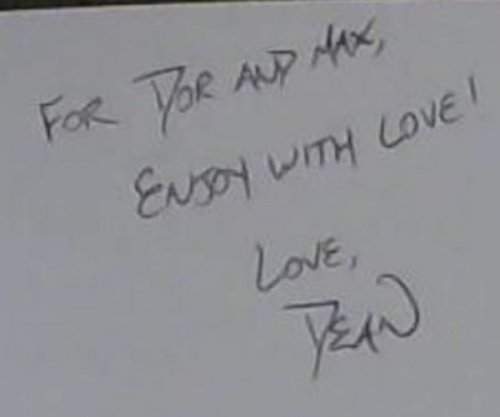 FOR DOR AND MAX,
ENJOY WITH LOVE!
LOVE,
DEAN